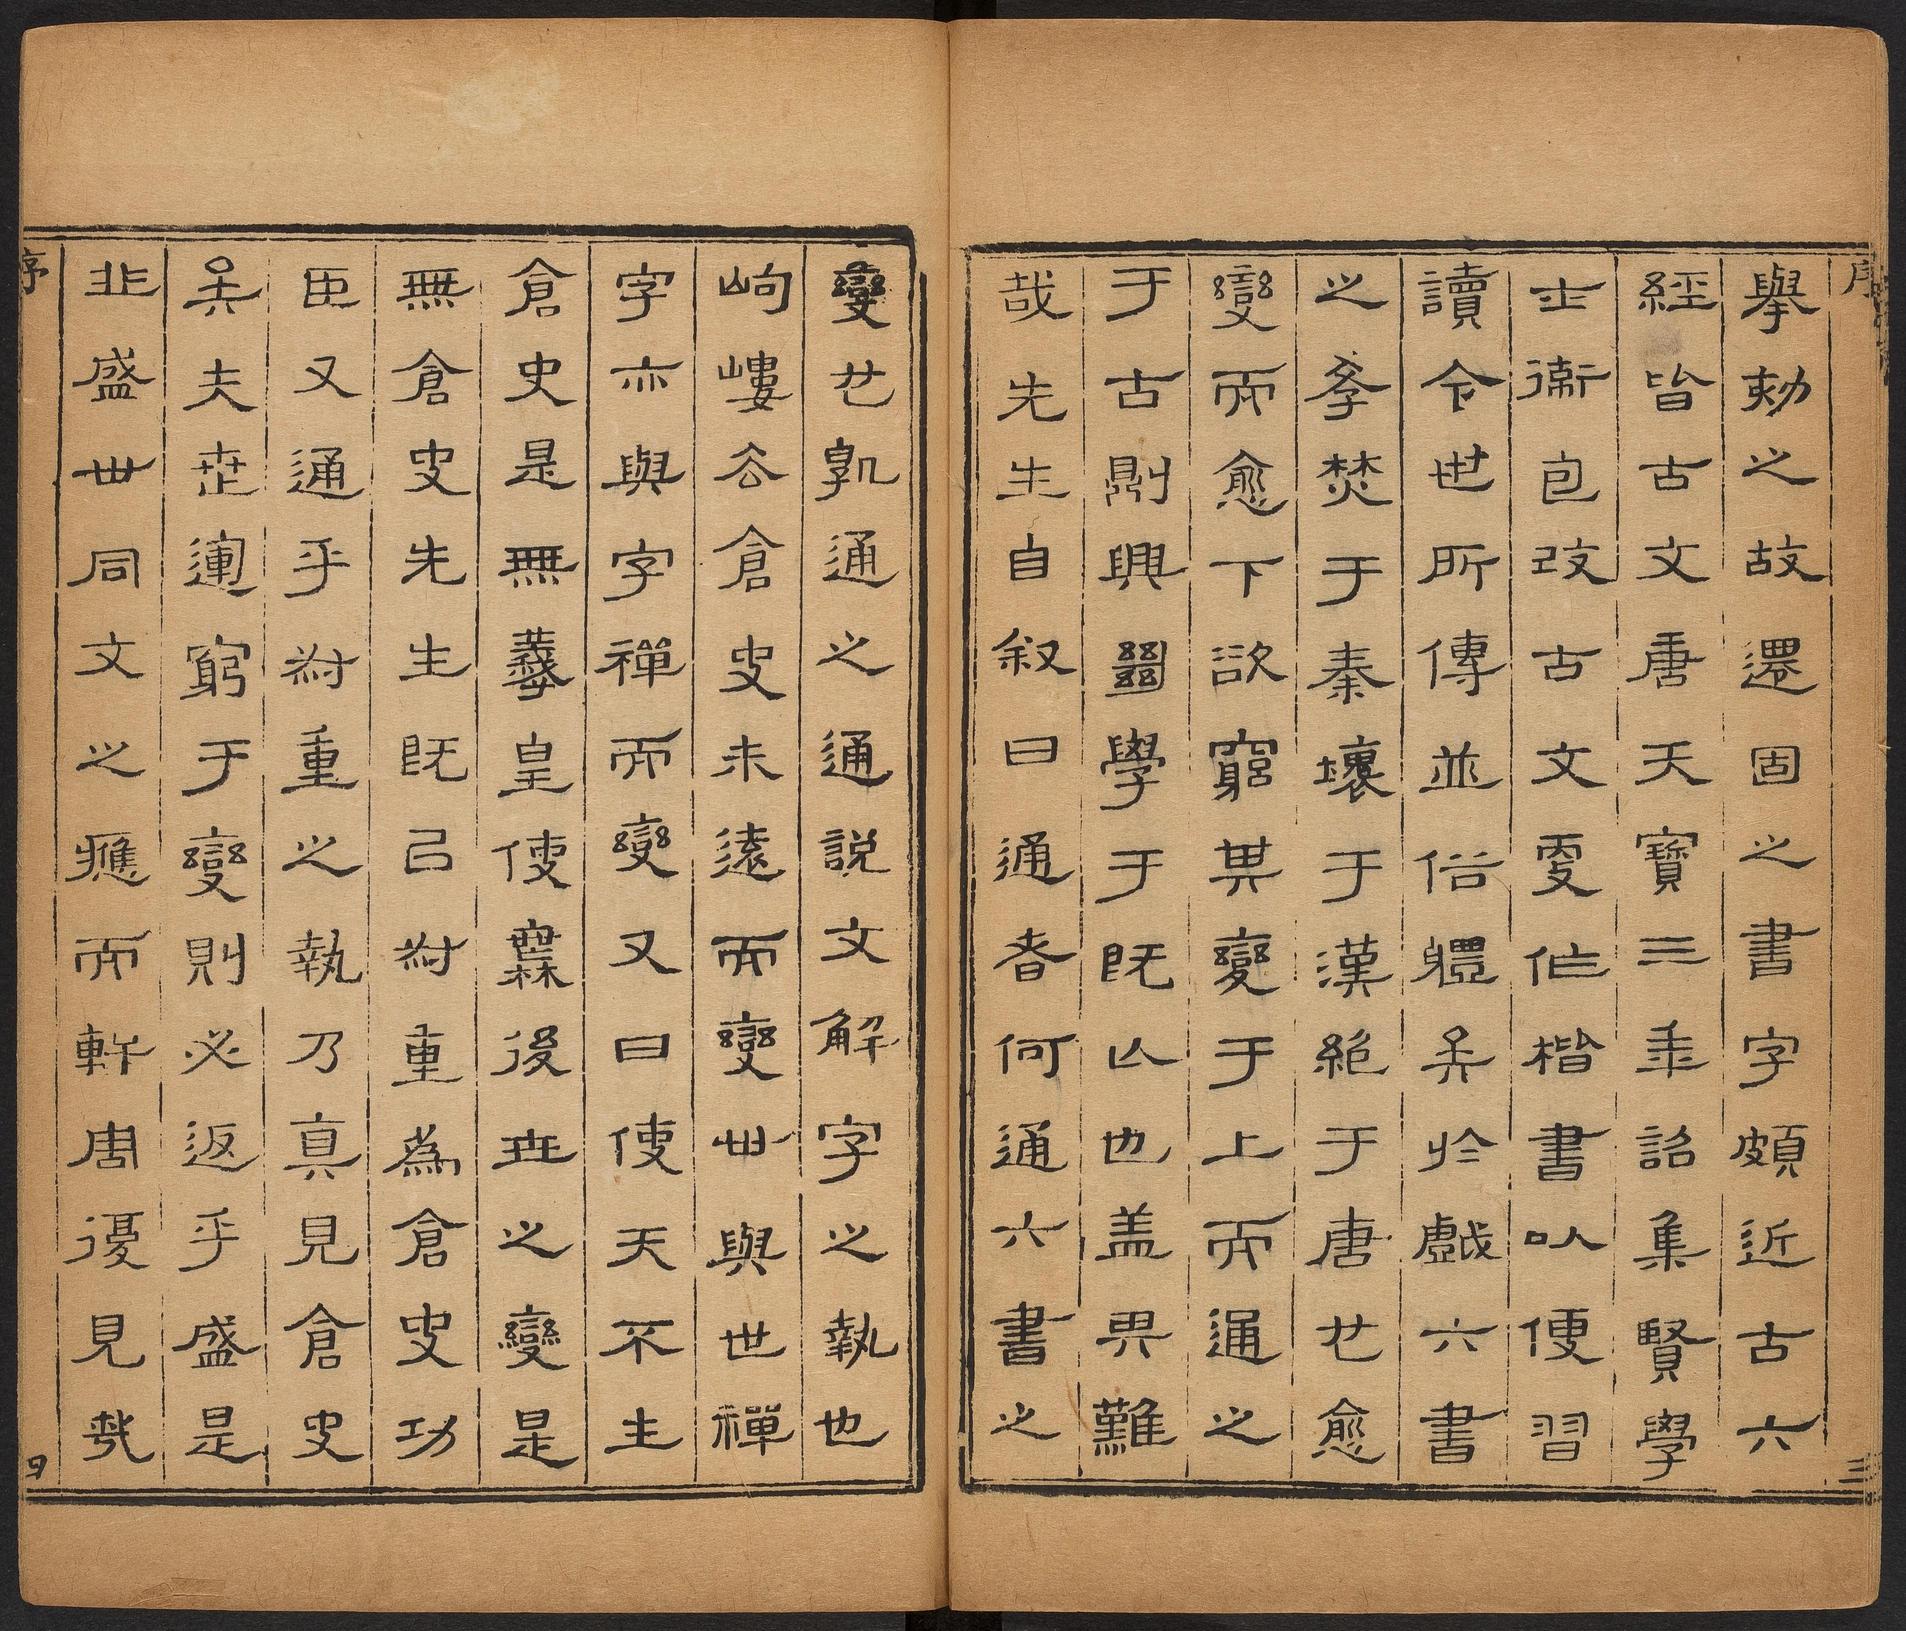 序 三
舉勑之故還固之書字頗近古六
經皆古文唐天寶三年詔集賢學
士衞包改古文更作楷書以便習
讀今世所傳並俗體矣於戲六書
之斈焚于秦壞于漢絕于唐也愈
變而愈下欲窮其變于上而通之
于古則興㡭學于既亡也盖畀難
哉先生自叙曰通者何通六書之
變也孰通之通說文解字之執也
岣嶁去倉史未遠而變世與世禪
字亦與字禪而變又曰使天不生
倉史是無羲皇使無後世之變是
無倉史先生既已叔重為倉史功
臣又通乎叔重之執乃真見倉史
矣夫世運窮于變則必返乎盛是
非盛世同文之應而軒周復見哉
序 四